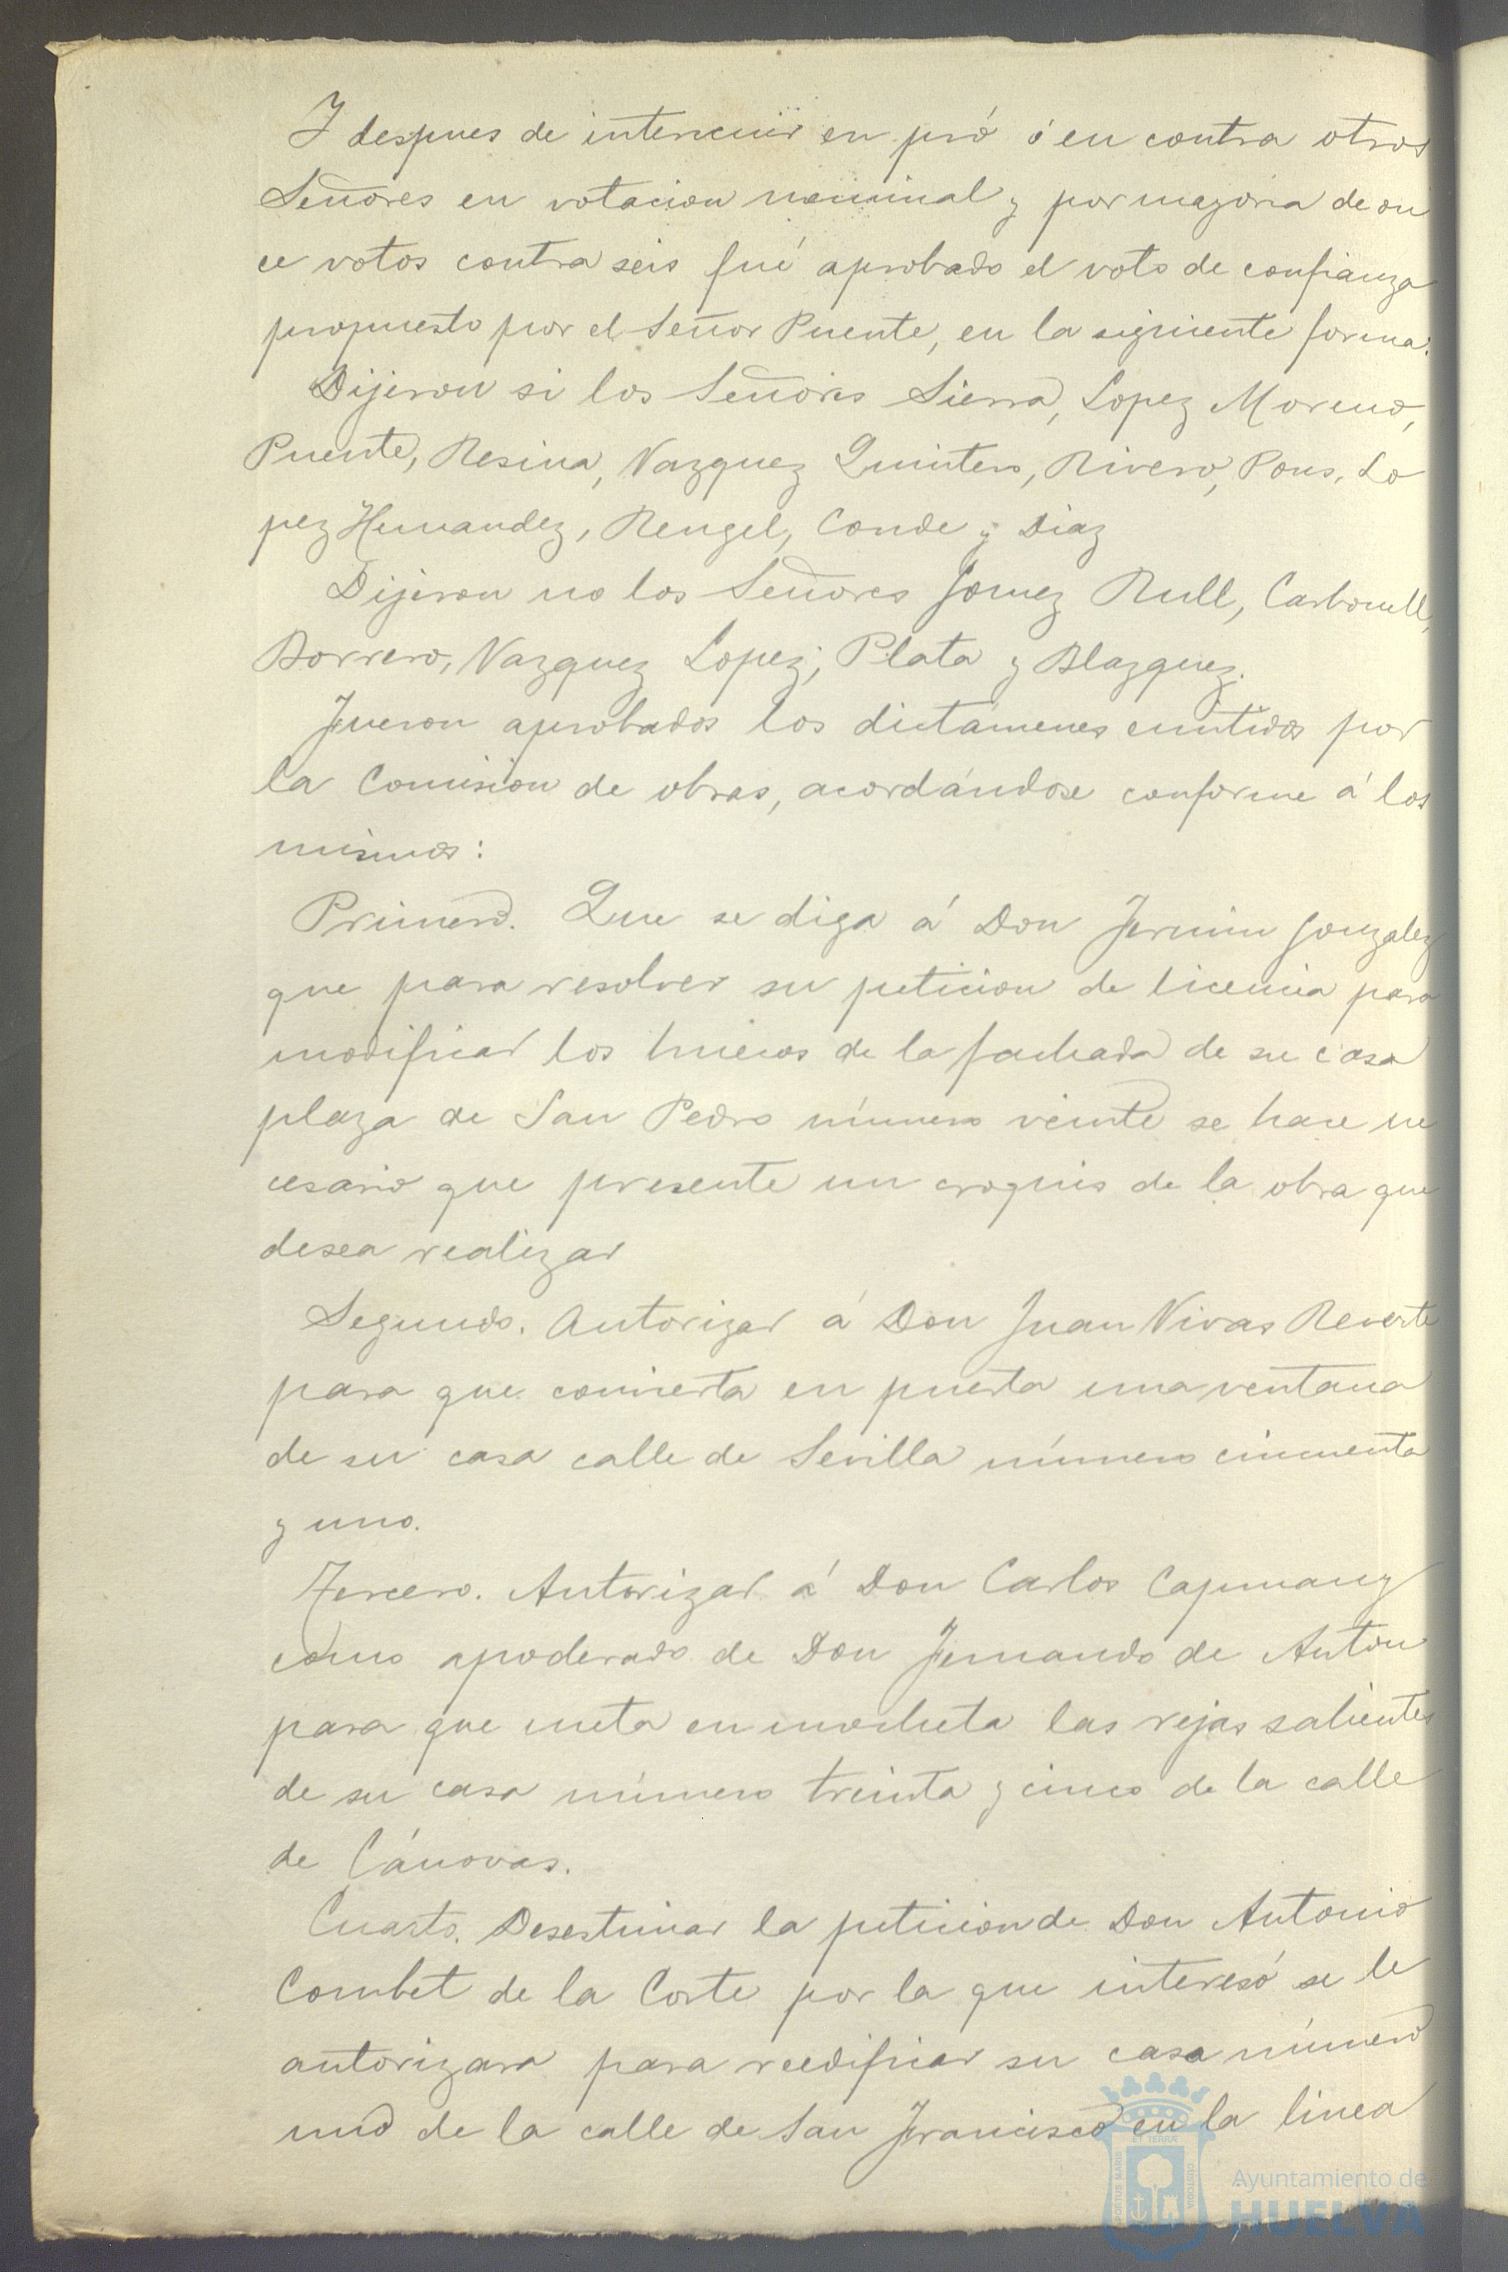 Y despues de intervenir en pró ó en contra otros
Señores en votacion nominal y por mayoria de on
ce votos contra seis fué aprobado el voto de confianza
propuesto por el Señor Puente, en la siguiente forma:
Dijeron si los Señores Sierra, Lopez Moreno,
Puente, Resina, Vazquez Quintero, Rivero, Pons, Lo
pez Hernandez, Rengel, Conde y Diaz
Dijeron no los Señores Gomez Rull, Carbonell,
Borrero, Vazquez Lopez, Plata y Blazquez.
Fueron aprobados los dictámenes emitidos por
la Comision de obras, acordándose conforme á los
mismos:
Primero. Que se diga á Don Fermin Gonzalez
que para resolver su peticion de licencia para
modificar los huecos de la fachada de su casa
plaza de San Pedro número veinte se hace ne
cesario que presente un croquis de la obra que
desea realizar
Segundo. Autorizar á Don Juan Vivas Reverte
para que convierta en puerta una ventana
de su casa calle de Sevilla número cincuenta
y uno.
Tercero. Autorizar á Don Carlos Capmany
como apoderado de Don Fernando de Anton
para que meta en mocheta las rejas salientes
de su casa número treinta y cinco de la calle
de Cánovas.
Cuarto. Desestimar la peticion de Don Antonio
Combet de la Corte por la que interesó se le
autorizara para reedificar su casa número
uno de la calle de San Francisco en la linea
PORTUS MARIS ET TERRÆ CUSTODIA
Ayuntamiento de
HUELVA